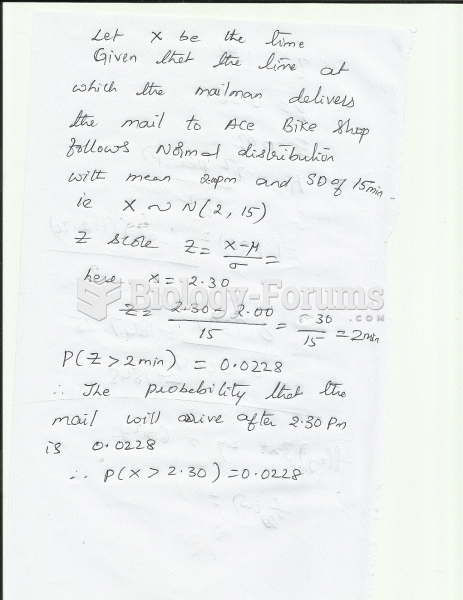 Let X be the time
Given that the time at
which the mailman delivers
the mail to Ace Bike Shop
follows Normal distribution
with mean 2.00pm and SD of 15min.
ie X ~ N(2, 15)
Z score Z = X-μ / σ =
here X = 2.30
Z = 2.30 - 2.00 / 15 = 30 / 15 = 2min
P(Z > 2min) = 0.0228
∴ The probability that the
mail will arrive after 2.30 Pm
is 0.0228
∴ P(X > 2.30) = 0.0228
Biology-Forums
.COM